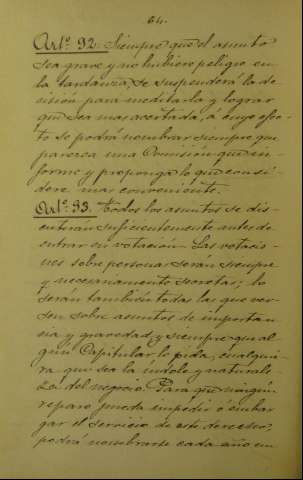 64.
Artº. 92. Siempre que el asunto
sea grave y no hubiere peligro en
la tardanza, se suspenderá la de
cisión para meditarla y lograr
que sea mas acertada, á cuyo efec-
to se podrá nombrar siempre que
parezca una Comisión que in-
forme y proponga lo que consi-
dere mas conveniente.
Artº. 93. Todos los asuntos se dis-
cutirán suficientemente antes de
entrar en votación. Las votacio-
nes sobre personas serán siempre
y necesariamente secretas; lo
serán también todas las que ver-
sen sobre asuntos de importan
cia y gravedad, y siempre que al
gún Capitular lo pida, cualquie-
ra que sea la indole y naturale-
za del negocio. Para que ningún
reparo pueda impedir ó embar
gar el servicio de este derecho,
podrá nombrarse cada año un